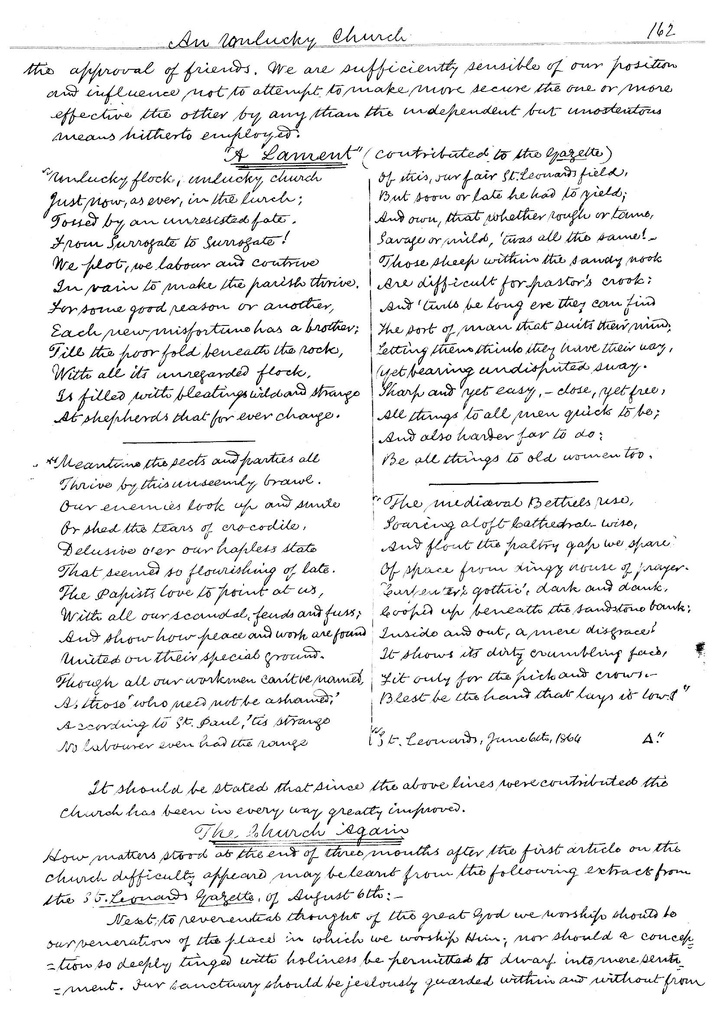 An Unlucky Church 162
the approval of friends. We are sufficiently sensible of our position
and influence not to attempt to make more secure the one or more
effective the other by any than the independent but unostentous
means hitherto employed.
"A Lament" (contributed to the Gazette)
"Unlucky flock; unlucky church
Just now, as ever, in the lurch;
Tossed by an unresisted fate.
From Surrogate to Surrogate!
We plot, we labour and contrive
In vain to make the parish thrive.
For some good reason or another,
Each new misfortune has a brother;
Till the poor fold beneath the rock,
With all its unregarded flock,
Is filled with bleatings wild and strange
At shepherds that for ever change.
"Meantime the sects and parties all
Thrive by this unseemly brawl.
Our enemies look up and smile
Or shed the tears of crocodile,
Delusive o'er our hapless state
That seemed so flourishing of late.
The Papists love to point at us,
With all our scandal, feuds and fuss;
And show how peace and work are found
United on their special ground.
Though all our workmen can't be named,
As those 'who need not be ashamed;'
According to St. Paul, 'tis strange
No labourer even had the range
Of this, our fair St. Leonards field,
But soon or late he had to yield;
And own, that whether rough or tame,
Savage or mild, 'twas all the same!-
Those sheep within the sandy nook
Are difficult for pastor's crook;
And 'twill be long ere they can find
The sort of man that suits their mind,
Letting them think they have their way,
Yet bearing undisputed sway.
Sharp and yet easy, - close, yet free,
All things to all men quick to be;
And also harder far to do;
Be all things to old women too.
"The mediæval Bethels rise,
Soaring aloft Cathedral-wise,
And flout the paltry gap we spare
Of space from dingy house of prayer.
gothic', dark and dank,
Coop'd up beneath the sandstone bank;
Inside and out, a mere disgrace!
It shows its dirty crumbling face,
Fit only for the pick and crow:-
Blest be the hand that lays it low!"
"St. Leonards, June 6th, 1864 Δ."
It should be stated that since the above lines were contributed the
church has been in every way greatly improved.
The Church Again
How matters stood at the end of three months after the first article on the
church difficulty appeared may be learnt from the following extract from
the St. Leonards Gazette, of August 6th:-
Next to reverential thought of the great God we worship should be
our veneration of the place in which we worship Him; nor should a concep=
=tion so deeply tinged with holiness be permitted to dwarf into mere senti=
=ment. Our sanctuary should be jealously guarded within and without from